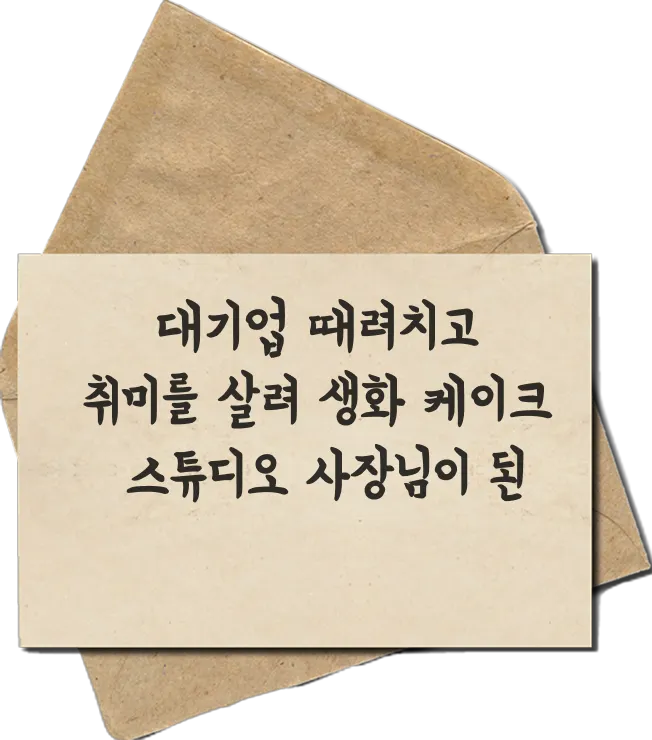 대기업 때려치고
취미를 살려 생화 케이크
스튜디오 사장님이 된